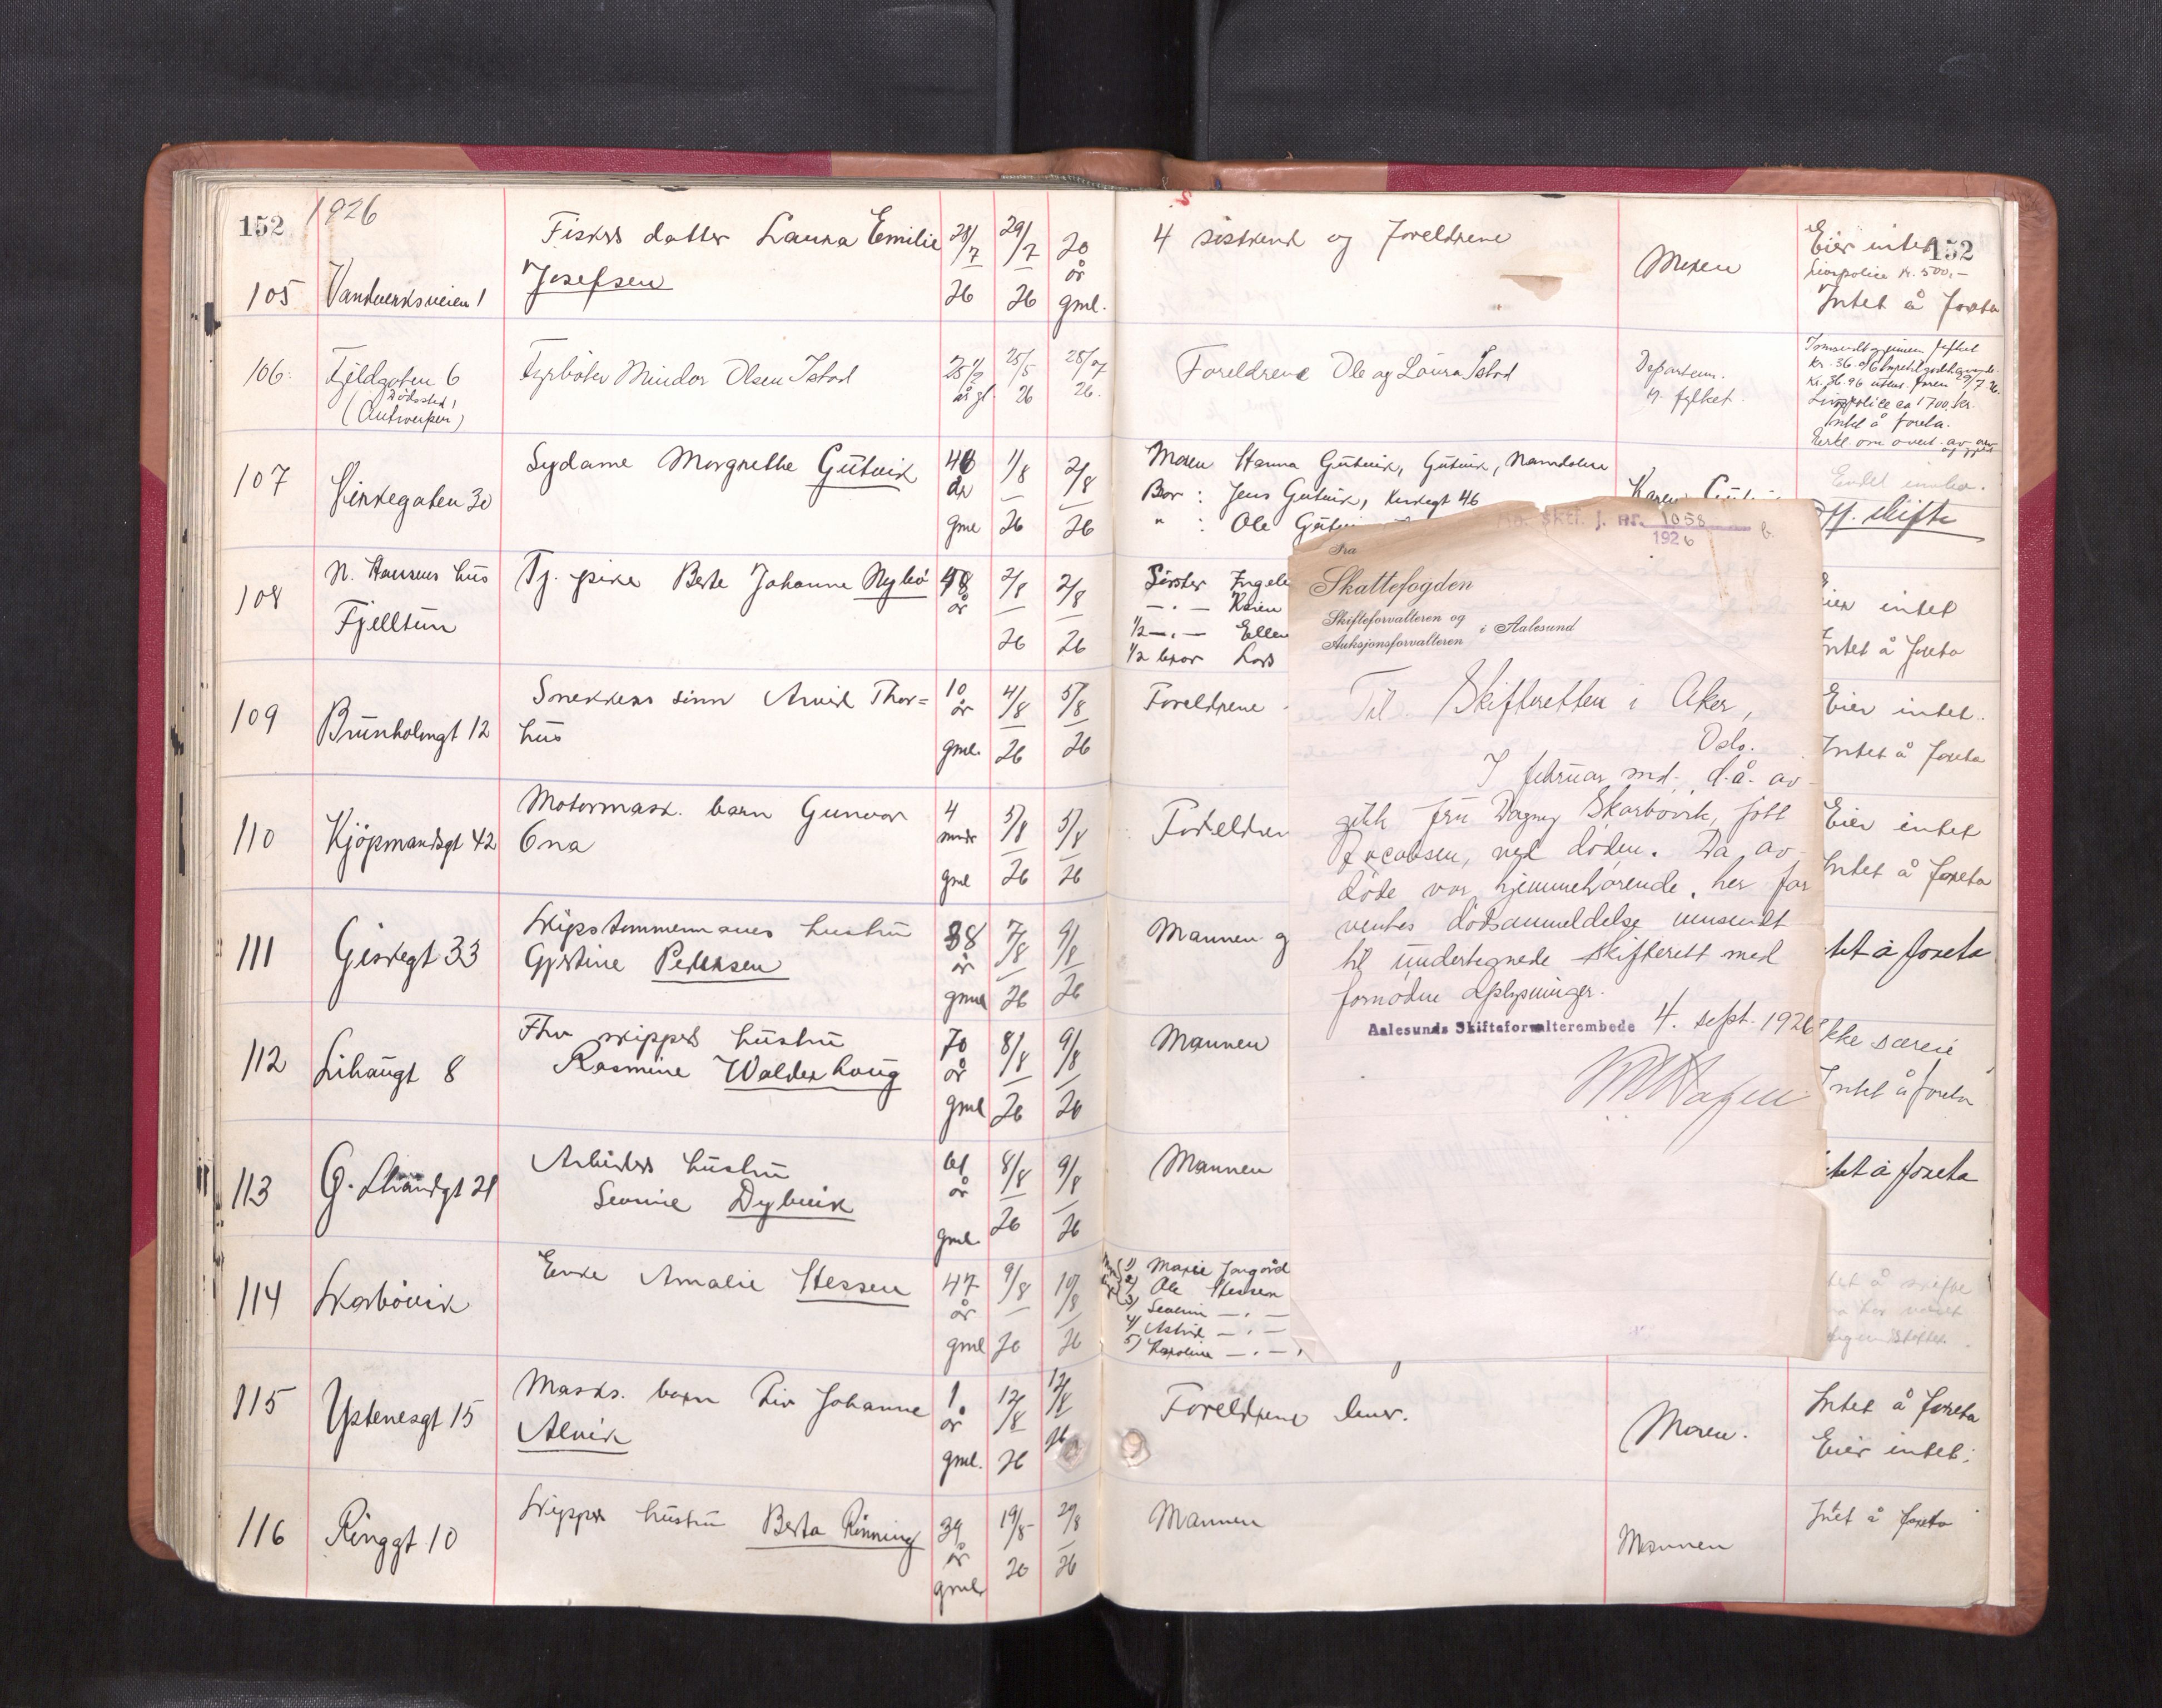 152
1926
105
Vandverksveien 1
Fiskers datter Laura Emilie
Josefsen
28/7 26
29/7 26
20 år gml.
4 søskend og foreldrene
Moren
152
Eier intet
Livspolice kr. 500,-
Intet å foreta
106.
Fjeldgaten 6
(Antwerpen)
Fyrbøter Mindor Olsen Istad
25 1/2 år gl.
25/5 26
28/7 26.
Foreldrene Ole og Laura Istad
Departem.
fylket
Livspolice ca 1700 kr.
Intet å foreta.
107
Kirkegaten 30
Sydame Margrethe Gutvik
år gml
1/8 26
2/8 26
Moren Hanna Gutvik, Gutvik, Namdalen
Bror : Jens Gutvik, Kirkegt 46
" : Ole
Off. skifte
108
N. Hansens hus
Fjelltun
Tj. pike Berte Johanne Nybö
48 år
2/8 26
2/8 26
Søster
— " — Karen
1/2 — " — Ellen
1/2 bror Lars
Eier intet
Intet å foreta
109
Brunholmgt 12
Snekkers sønn Arvid Thor=
hus
10 år gml.
4/8 26
5/8 26
Foreldrene
Eier intet.
Intet å foreta
110
Kjöpmandsgt 42
Motormask. barn Gunvor
Ona
4 mndr gml
5/8 26
5/8 26
Foreldren
Eier intet
Intet å foreta
111
Giskegt 33
Skipstømmermanns hustru
Gjertine Pedersen
38 år gml
7/8 26
9/8 26
Mannen
intet å foreta
112
Lihaugt 8
Fhv skippers hustru
Rasmine Walderhaug
70 år gml
8/8 26
9/8 26
Mannen
Ikke særeie
Intet å foreta
113
G. Strandgt 21
Arbeiders hustru
Sevrine Dybvik
61 år gml.
8/8 26
9/8 26
Mannen
intet å foreta
114
Skarbövik
Enke Amalie Hessen
47 år gml
9/8 26
10/8 26
1) Marie
2) Ole Hessen
3) Severin — " —
4) Astrid — " —
5) Karoline — " —
115
Ystenesgt 15
Masks. barn Liv Johanne
Alvik
1 år gml.
12/8 26
12/8 26
Foreldrene lever.
Moren.
Intet å foreta
Eier intet.
116
Ringgt 10
Skippers hustru Berta Rönning
39 år gml
19/8 26
Mannen
Mannen
Intet å foreta
Skft. j. nr. 1058
1926
Fra
Skattefogden
Skifteforvalteren og
Auksjonsforvalteren
i Aalesund
Til Skifteretten i Aker,
Oslo.
I februar md. d.å. av-
gikk fru Dagny Skarbövik, født
Jacobsen, ved døden. Da av-
døde var hjemmehørende her for
ventes dødsanmeldelse innsendt
til undertegnede skifterett med
fornødne oplysninger.
Aalesunds Skifteforvalterembede 4. sept. 1926